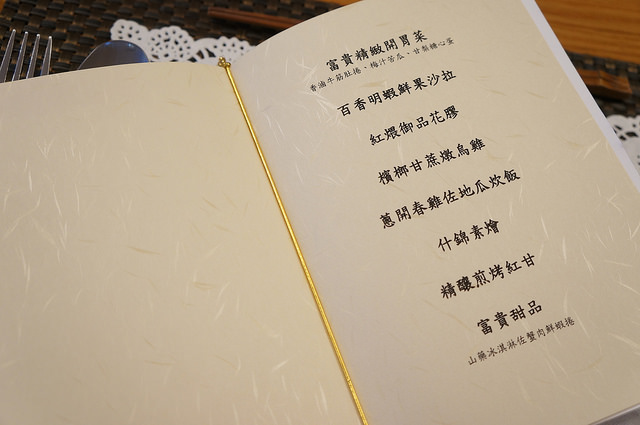 富貴精緻開胃菜
香滷牛筋肚捲、梅汁苦瓜、甘梨糖心蛋
百香明蝦鮮果沙拉
紅煨御品花膠
檳榔甘蔗燉烏雞
蔥開春雞佐地瓜炊飯
什錦素燴
精釀煎烤紅甘
富貴甜品
山藥冰淇淋佐蟹肉鮮蝦捲